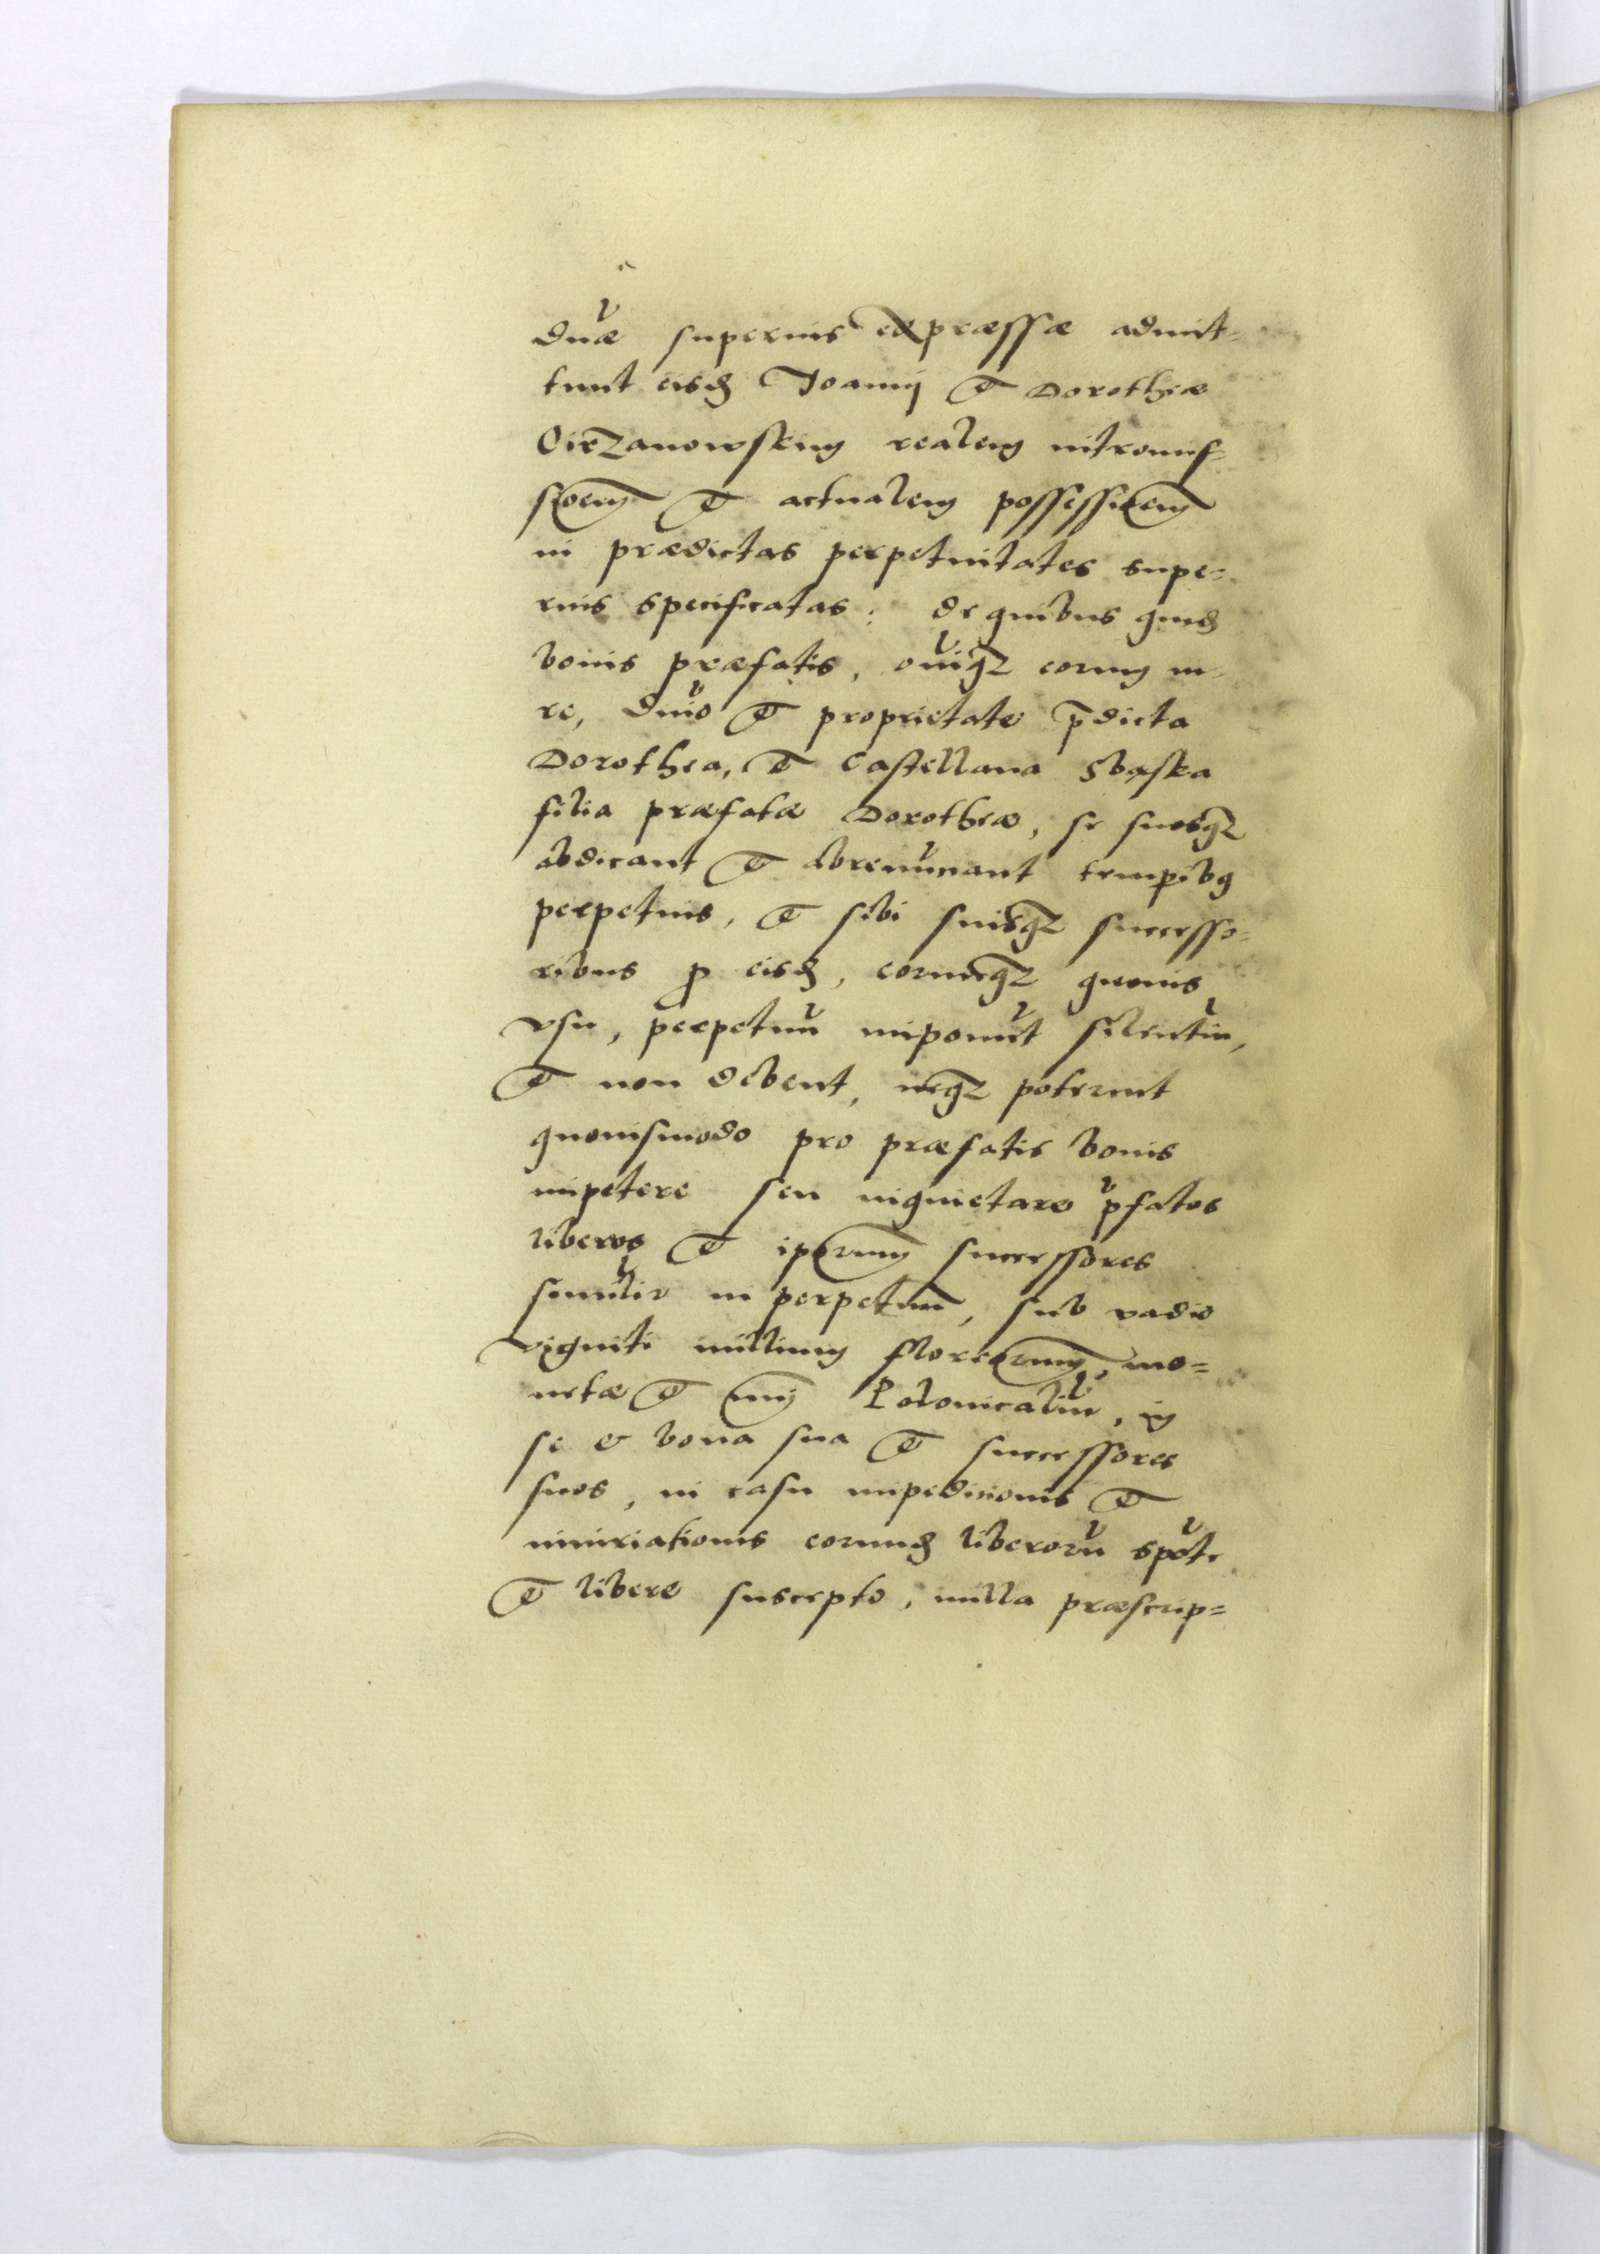 duæ superius expræssæ admit-
tunt eisd Joannj et Dorotheæ
Cirzanowskim realem intromis-
sioem et actualem possessioem
in prædictas perpetuitates supe-
rius specificatas: de quibus quid
bonis præfatis, oniqz eorum iu-
re, dnio et proprietate pdicta
Dorothea, et Castellana Sbąska
filia præfatæ Dorotheæ, se suosqz
abdicant et abrenunciant tempibus
perpetuis, et sibi suisqz successo-
ribus p eisd, eorumqz quouis
vsu, perpetuū imponūt silentiū,
et non debent, neqz poterint
quouismodo pro præfatis bonis
impetere seu inquietare pfatos
liberos et ipsorum successores
similir in perpetuum, sub vadio
viginti millium florenorum, mo-
netæ et nuj Polonicaliū, in
se & bona sua et successores
suos, in casu impedicionis et
iniuriationis eorund liberorū spote
et libere suscepto, nulla præscrip=